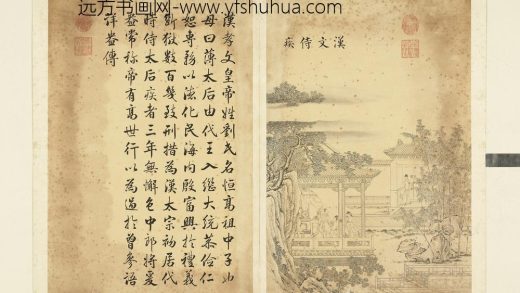 远方书画网-www.yfshuhua.com
漢文侍疾
漢孝文皇帝姓劉氏名恒高祖中子也
母曰薄太后由代王入繼大統恭儉仁
恕專務以法化民海內殷富興於禮義
斷獄數百幾致刑措為漢太宗初居代
時侍太后疾者三年無懈色中郎將爰
盎常稱帝有高世行以為過於曾參語
詳盎傳